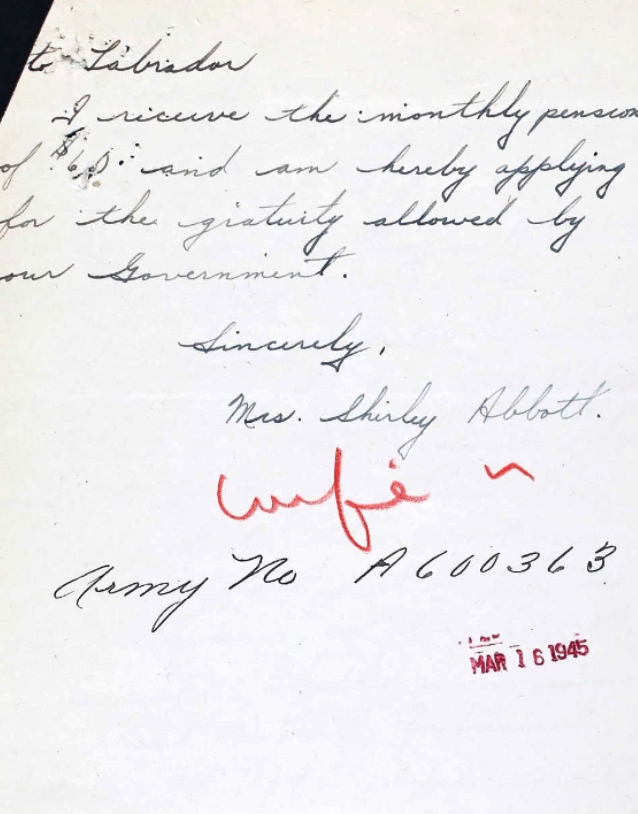 to Labrador
I receive the monthly pension
of $60. and am hereby applying
for the gratuity allowed by
our Government.
Sincerely,
Mrs. Shirley Abbott.
wife
Army No A600363
MAR 16 1945